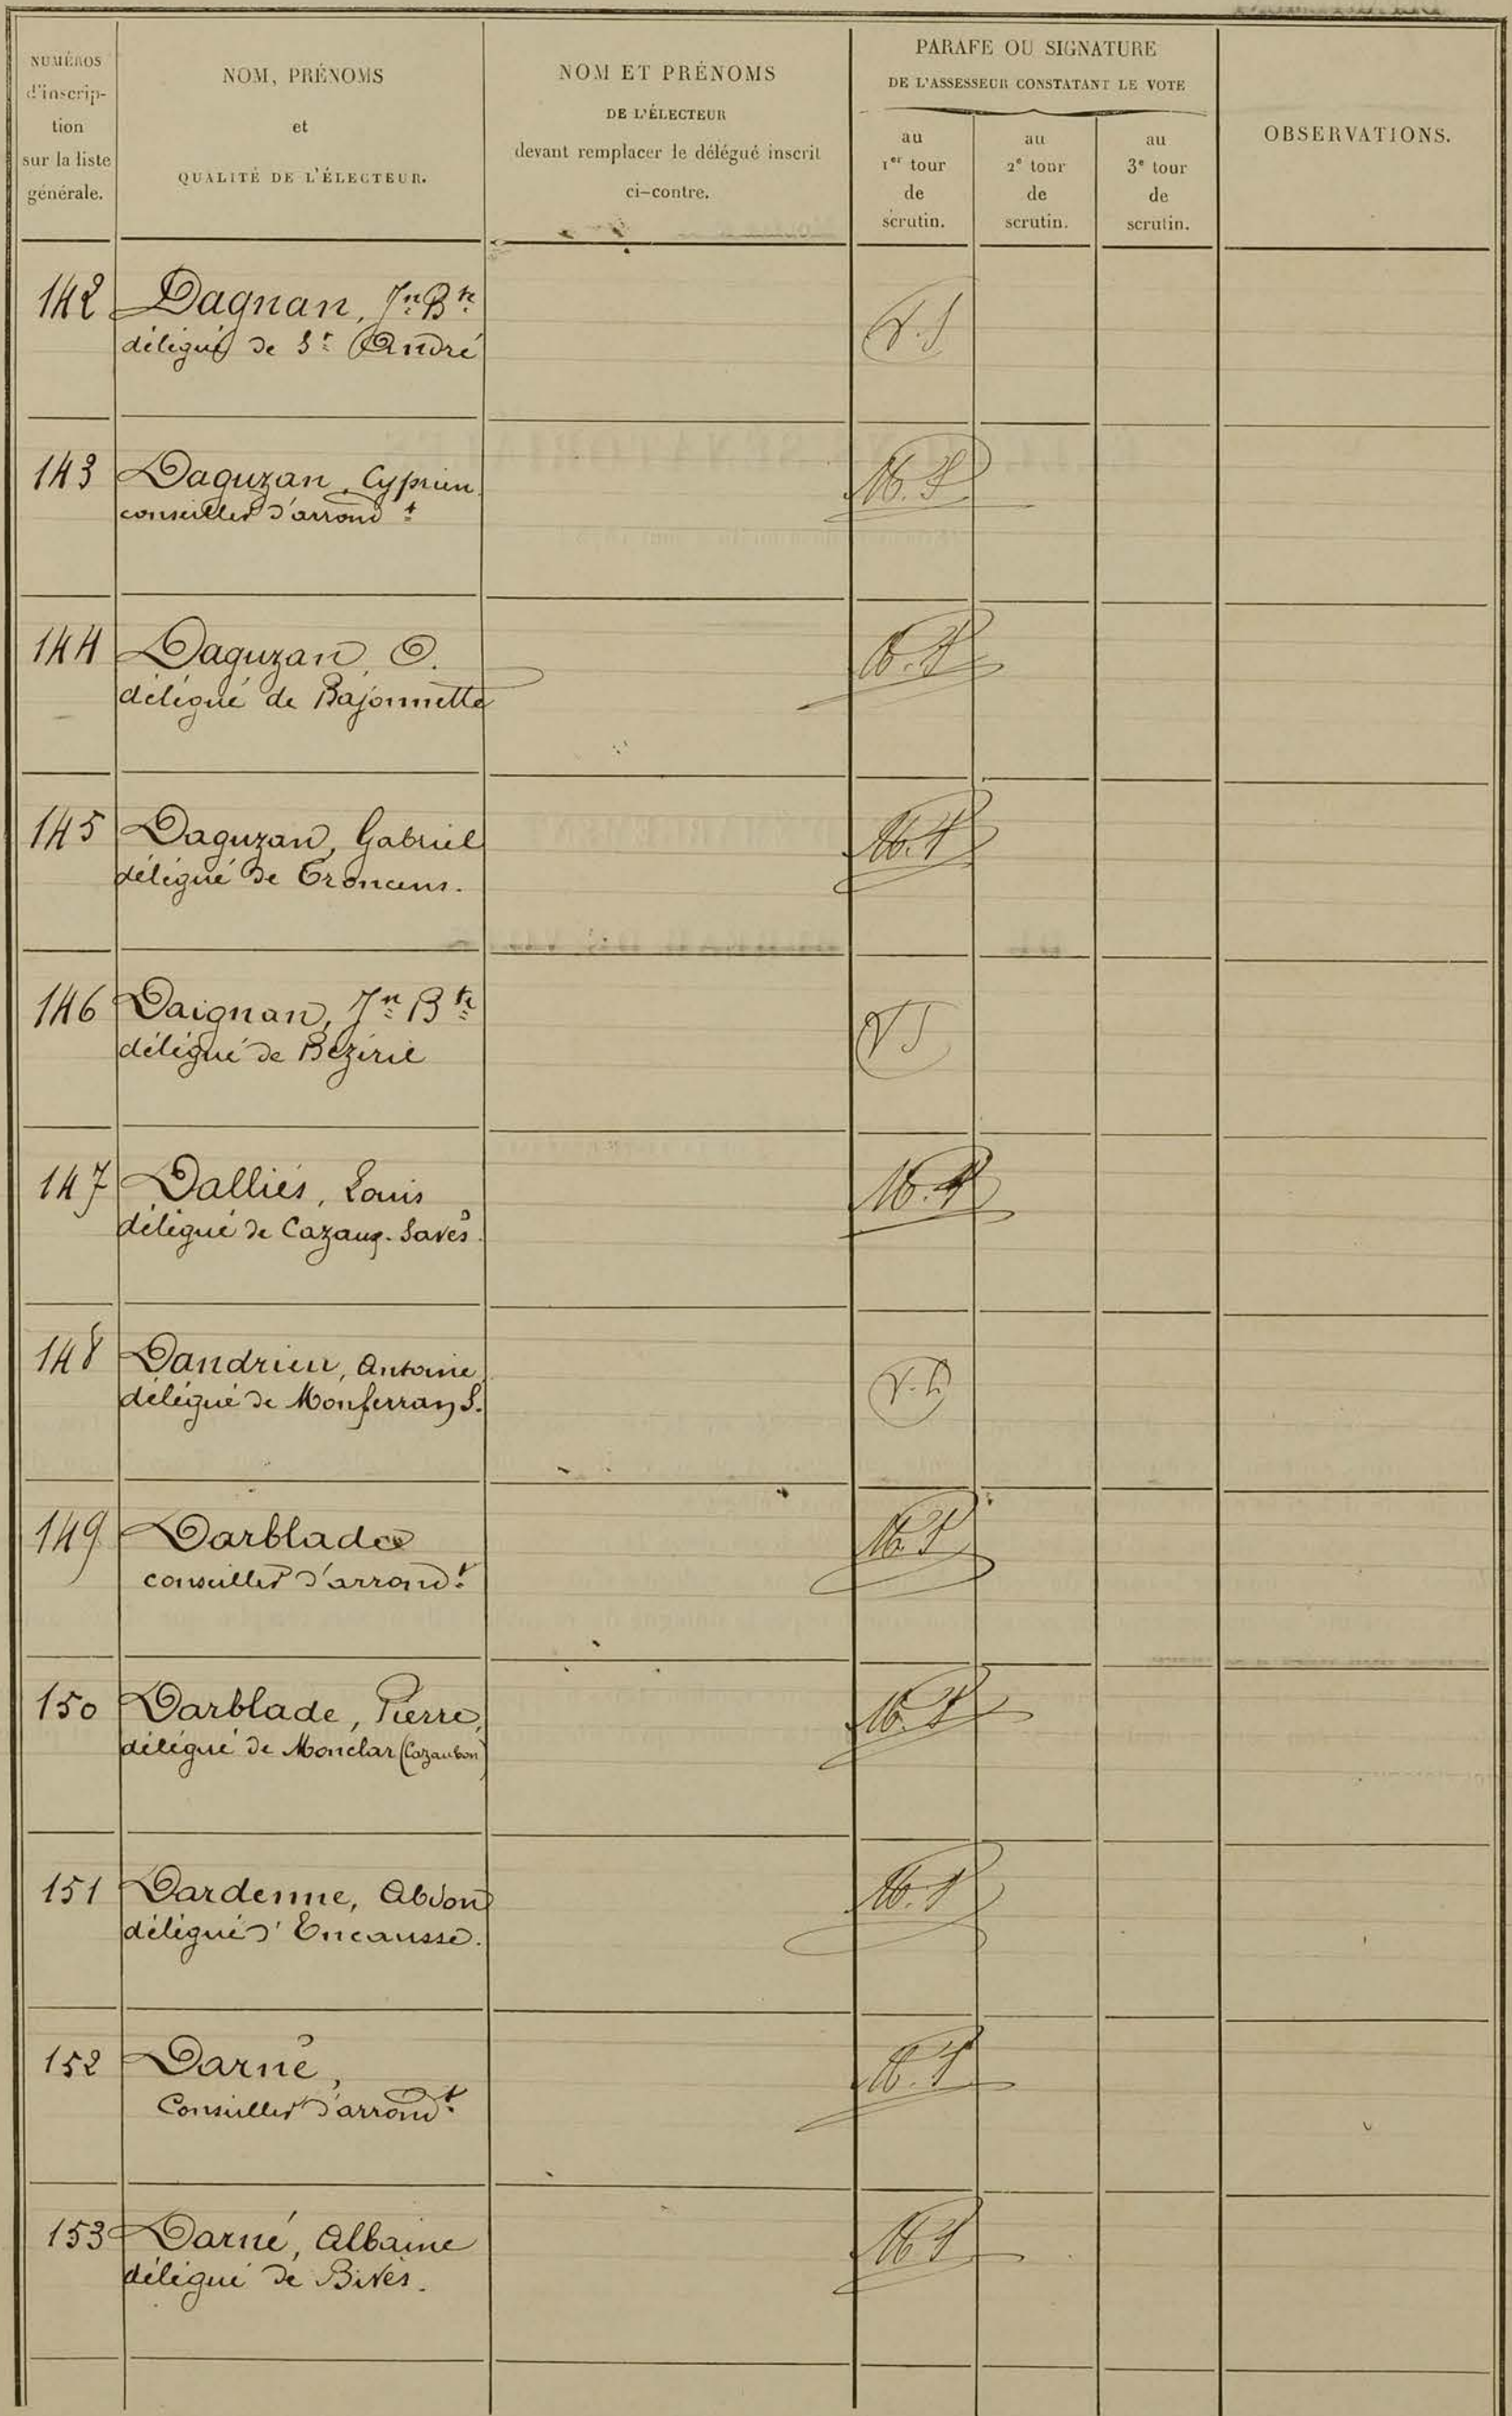 NUMÉROS
d'inscrip-
tion
sur la liste
générale.
NOM, PRÉNOMS
et
QUALITÉ DE L'ÉLECTEUR.
NOM ET PRÉNOMS
DE L'ÉLECTEUR
devant remplacer le délégué inscrit
ci-contre.
PARAFE OU SIGNATURE
DE L'ASSESSEUR CONSTATANT LE VOTE
au
1er tour
de
scrutin.
au
2e tour
de
scrutin.
au
3e tour
de
scrutin.
OBSERVATIONS.
142 Dagnan, Jn Bte
délégué de St André
143 Daguzan, Cyprien
conseiller d'arrondt
144 Daguzan, O.
délégué de Bajonnette
145 Daguzan, Gabriel
délégué de Troncens.
146 Daignan, Jn Bte
délégué de Bézéril
147 Dalliés, Louis
délégué de Cazaux-Savès.
148 Dandrieu, Antoine
délégué de Monferran S.
149 Darblade
conseiller d'arrondt
150 Darblade, Pierre,
délégué de Monclar (Cazaubon)
151 Dardenne, Abdon
délégué d'Encausse.
152 Darné,
Conseiller d'arrondt
153 Darné, Albaine
délégué de Bivès.